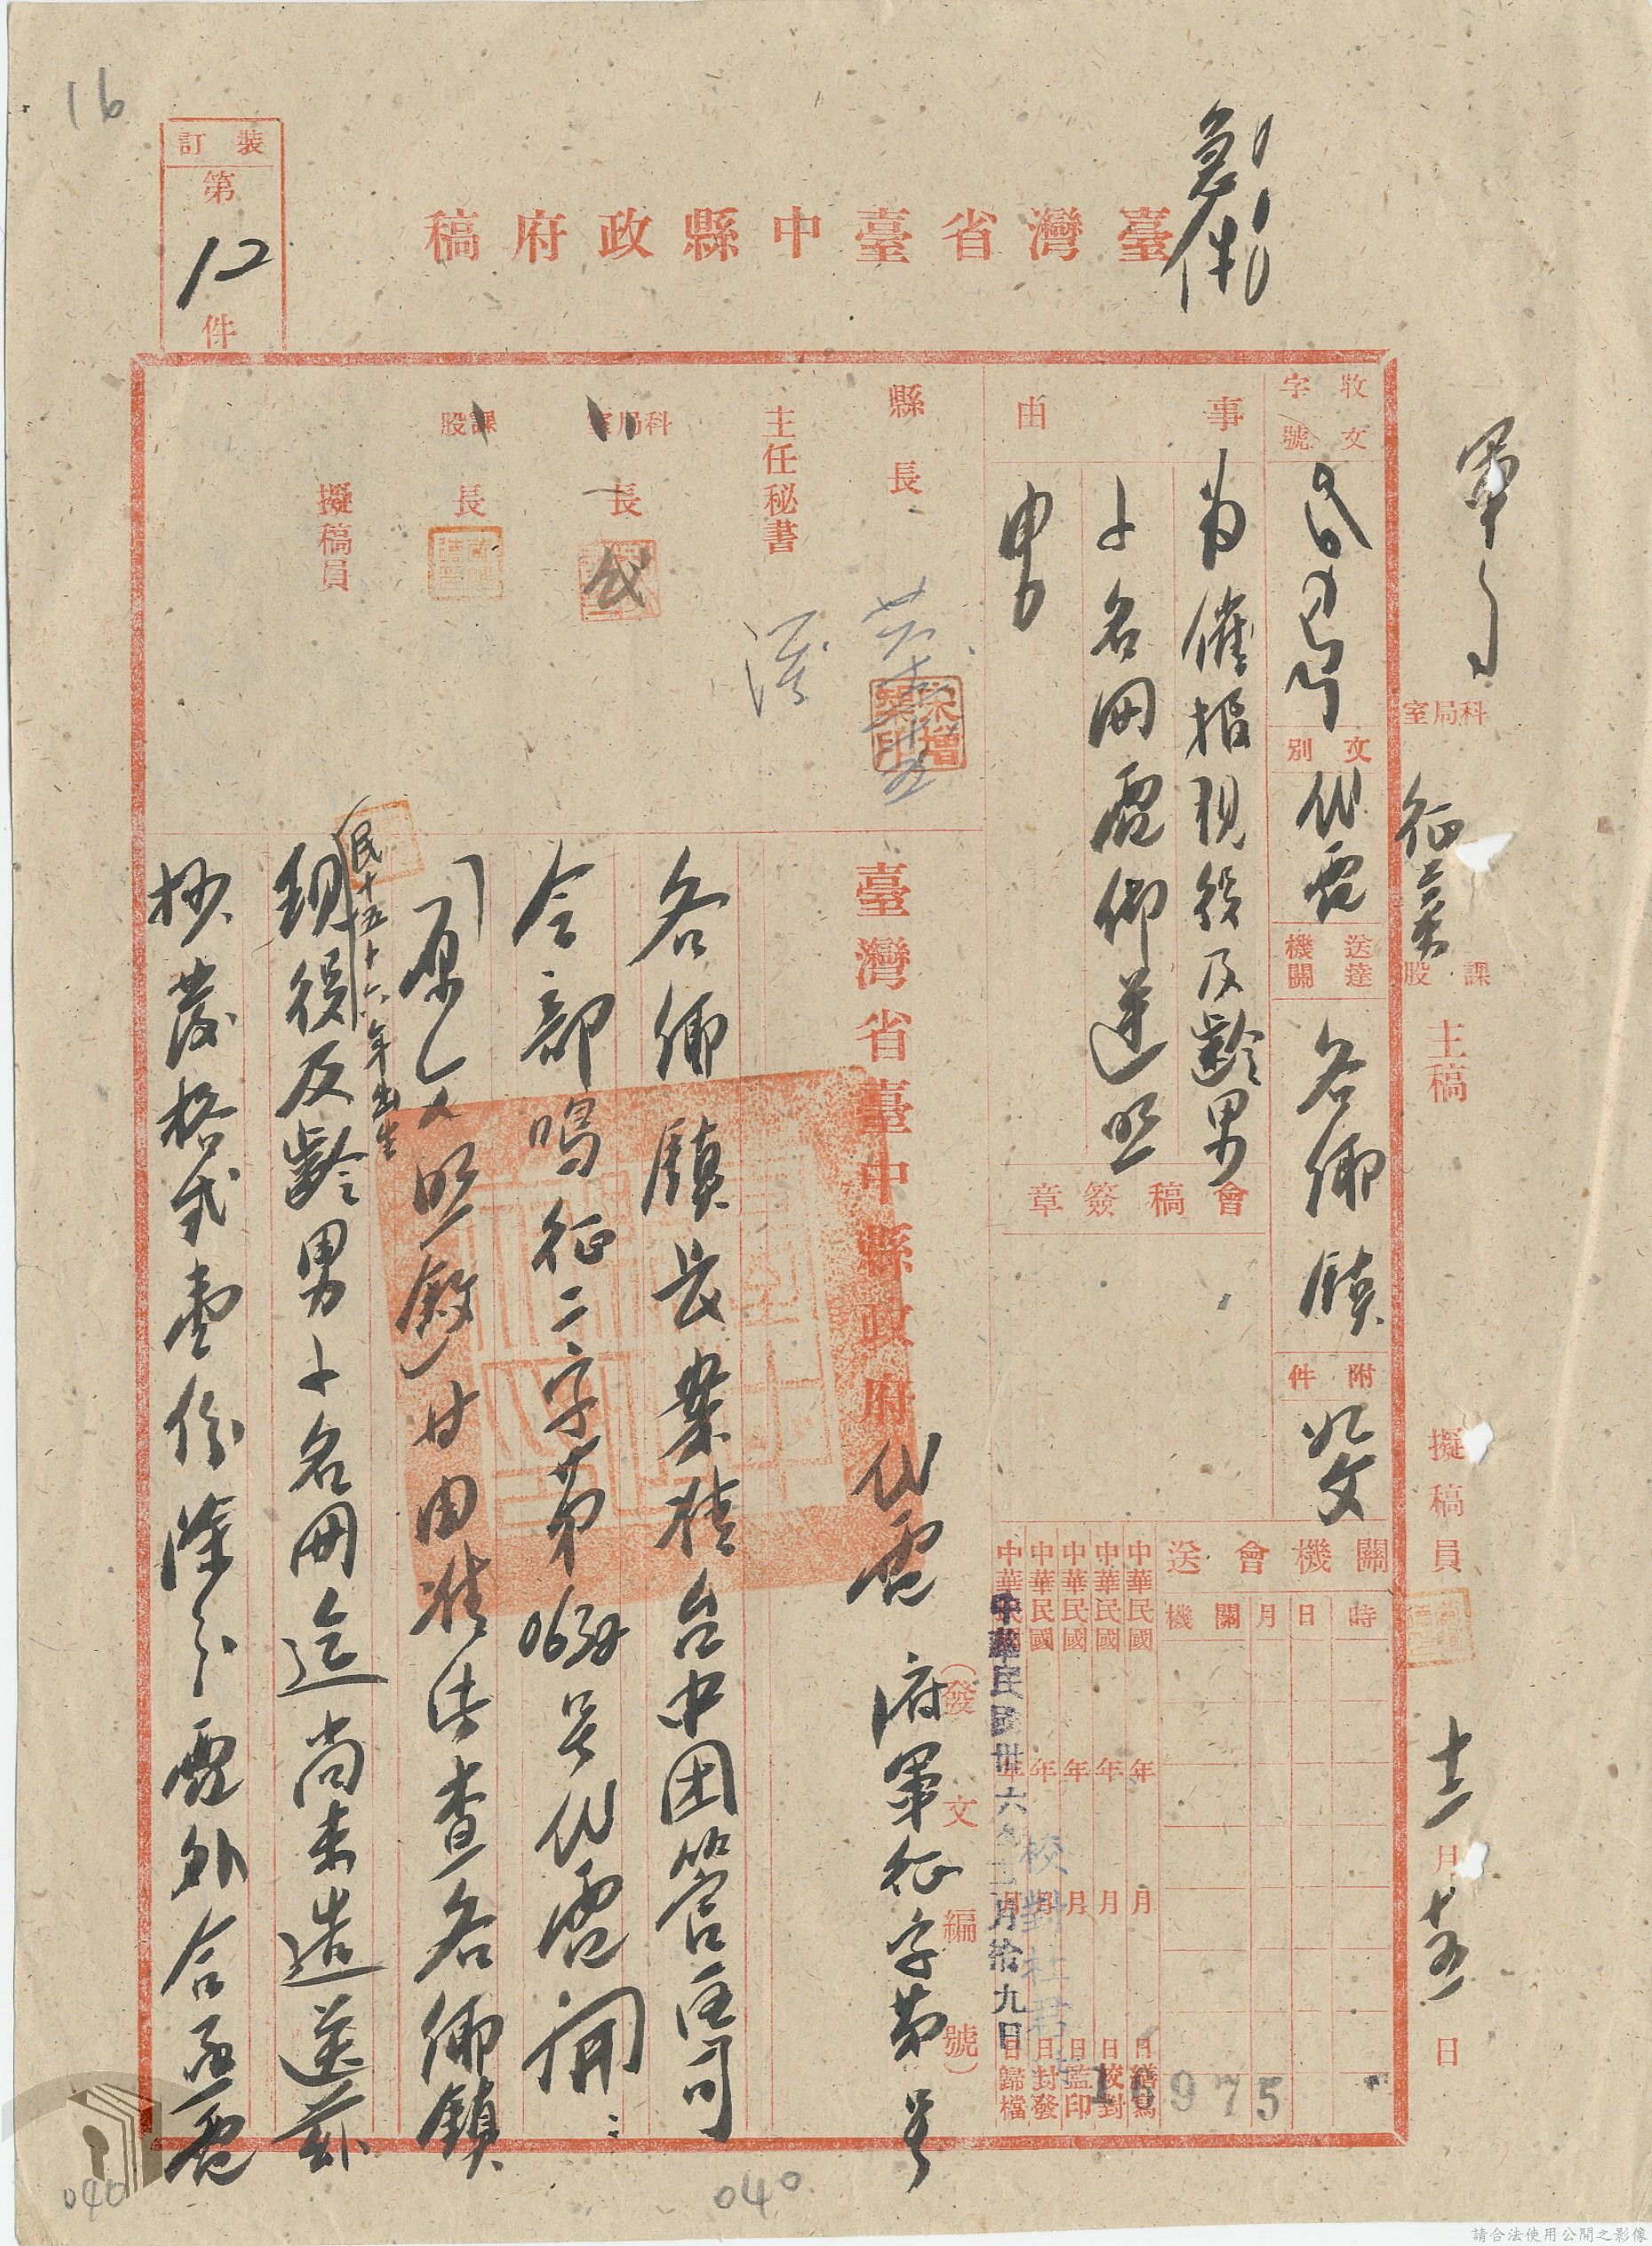 16
裝訂
第
12
件
急件
臺灣省臺中縣政府稿
軍
科局室
征募
課股
主稿
擬稿員
十二月十五日
收文
字號
文別
代電
送達機關
各鄉鎮
附件
如文
事由
為催報現役及齡男
丁名冊電仰遵照
由
會稿簽章
送會機關
機關月日時
中華民國年月日繕寫
中華民國年月日校對
中華民國年月日監印
中華民國年月日封發
中華民國年月日歸檔
中華民國卅六年十二月拾九日
校對
15975
縣長
主任秘書
科局室長
課股長
擬稿員
臺灣省臺中縣政府代電
(發文編號)
府軍征字第號
各鄉鎮長案准台中團管區司
令部鳴征二字第0653號代電開:
「原文照敘」等由准此查各鄉鎮
民十五、十六年出生
現役及齡男丁名冊迄尚未造送茲
抄發格式壹份除分電外合亟電
040
040
請合法使用公開之影像